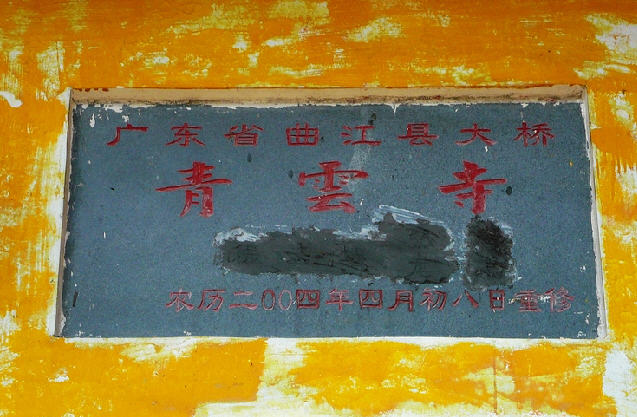 广东省曲江县大桥
青雲寺
农历二00四年四月初八日重修